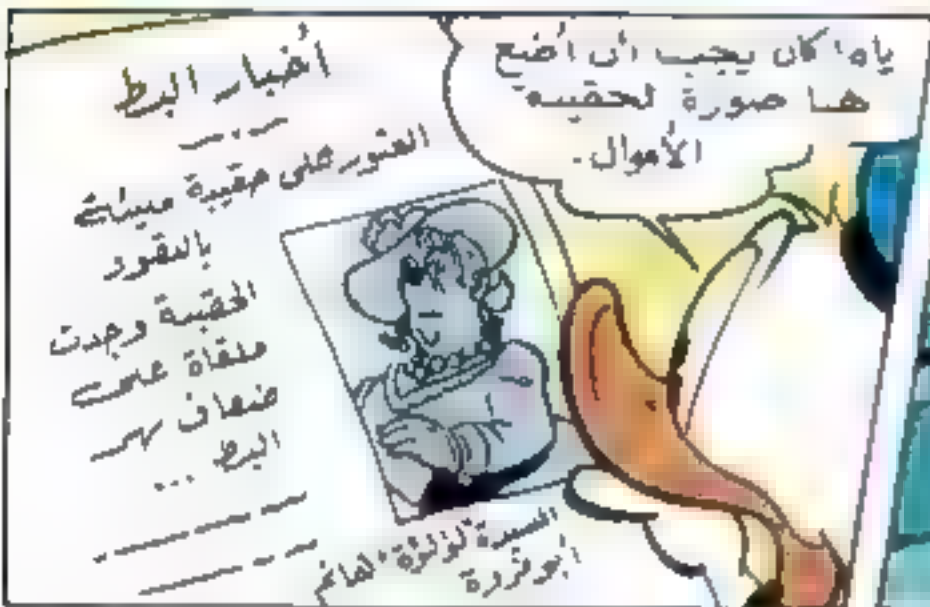 ياه! كان يجب أن أضع
هنا صورة لحقيبة
الأموال.
أخبار البط
العثور على حقيبة مليئة
بالنقود
الحقيبة وجدت
ملقاة على
ضفاف نهر
البط ...
السيدة "لؤلؤة" هانم
أبو ثروة